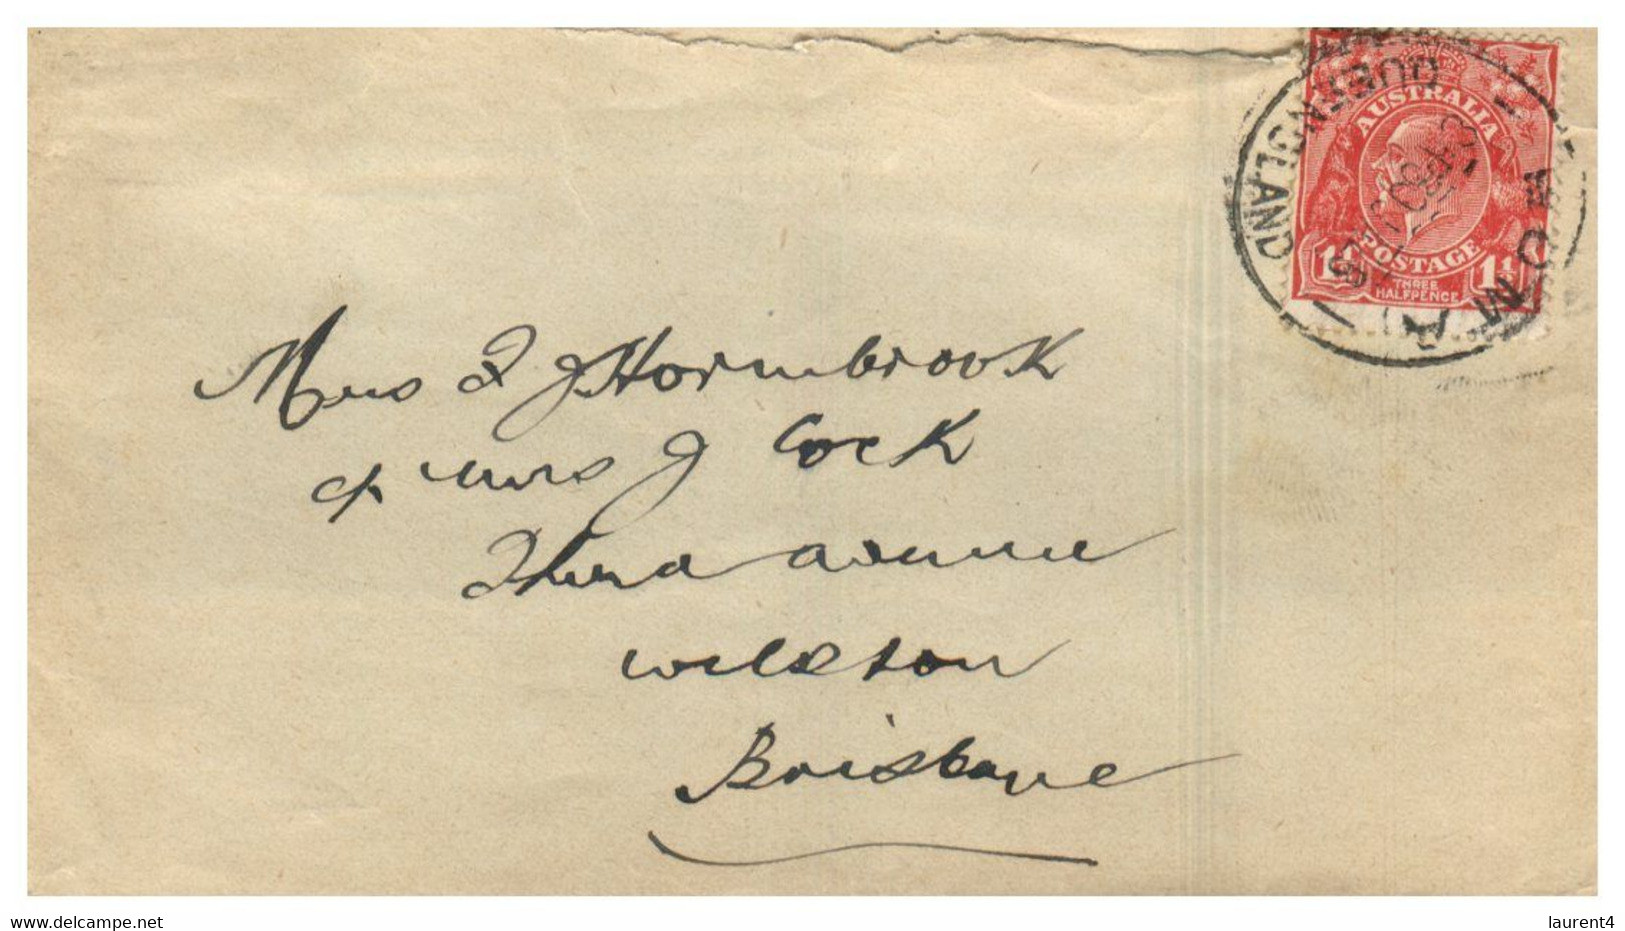 AUSTRALIA
POSTAGE
1½ 1½
THREE
HALFPENCE
ROMA
QUEENSLAND
Mrs J Hornibrook
c/- Mrs J Cock
Avenue
Wilston
Brisbane
www.delcampe.net
laurent4